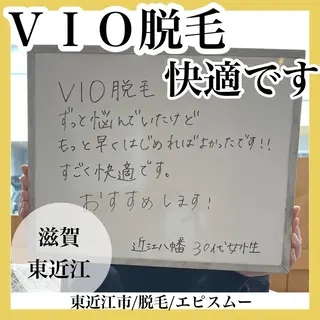 VIO脱毛
快適です
VIO脱毛
ずっと悩んでいたけど
もっと早くはじめればよかったです!!
すごく快適です。
おすすめします!
近江八幡 30代女性
滋賀
東近江
東近江市/脱毛/エピスムー